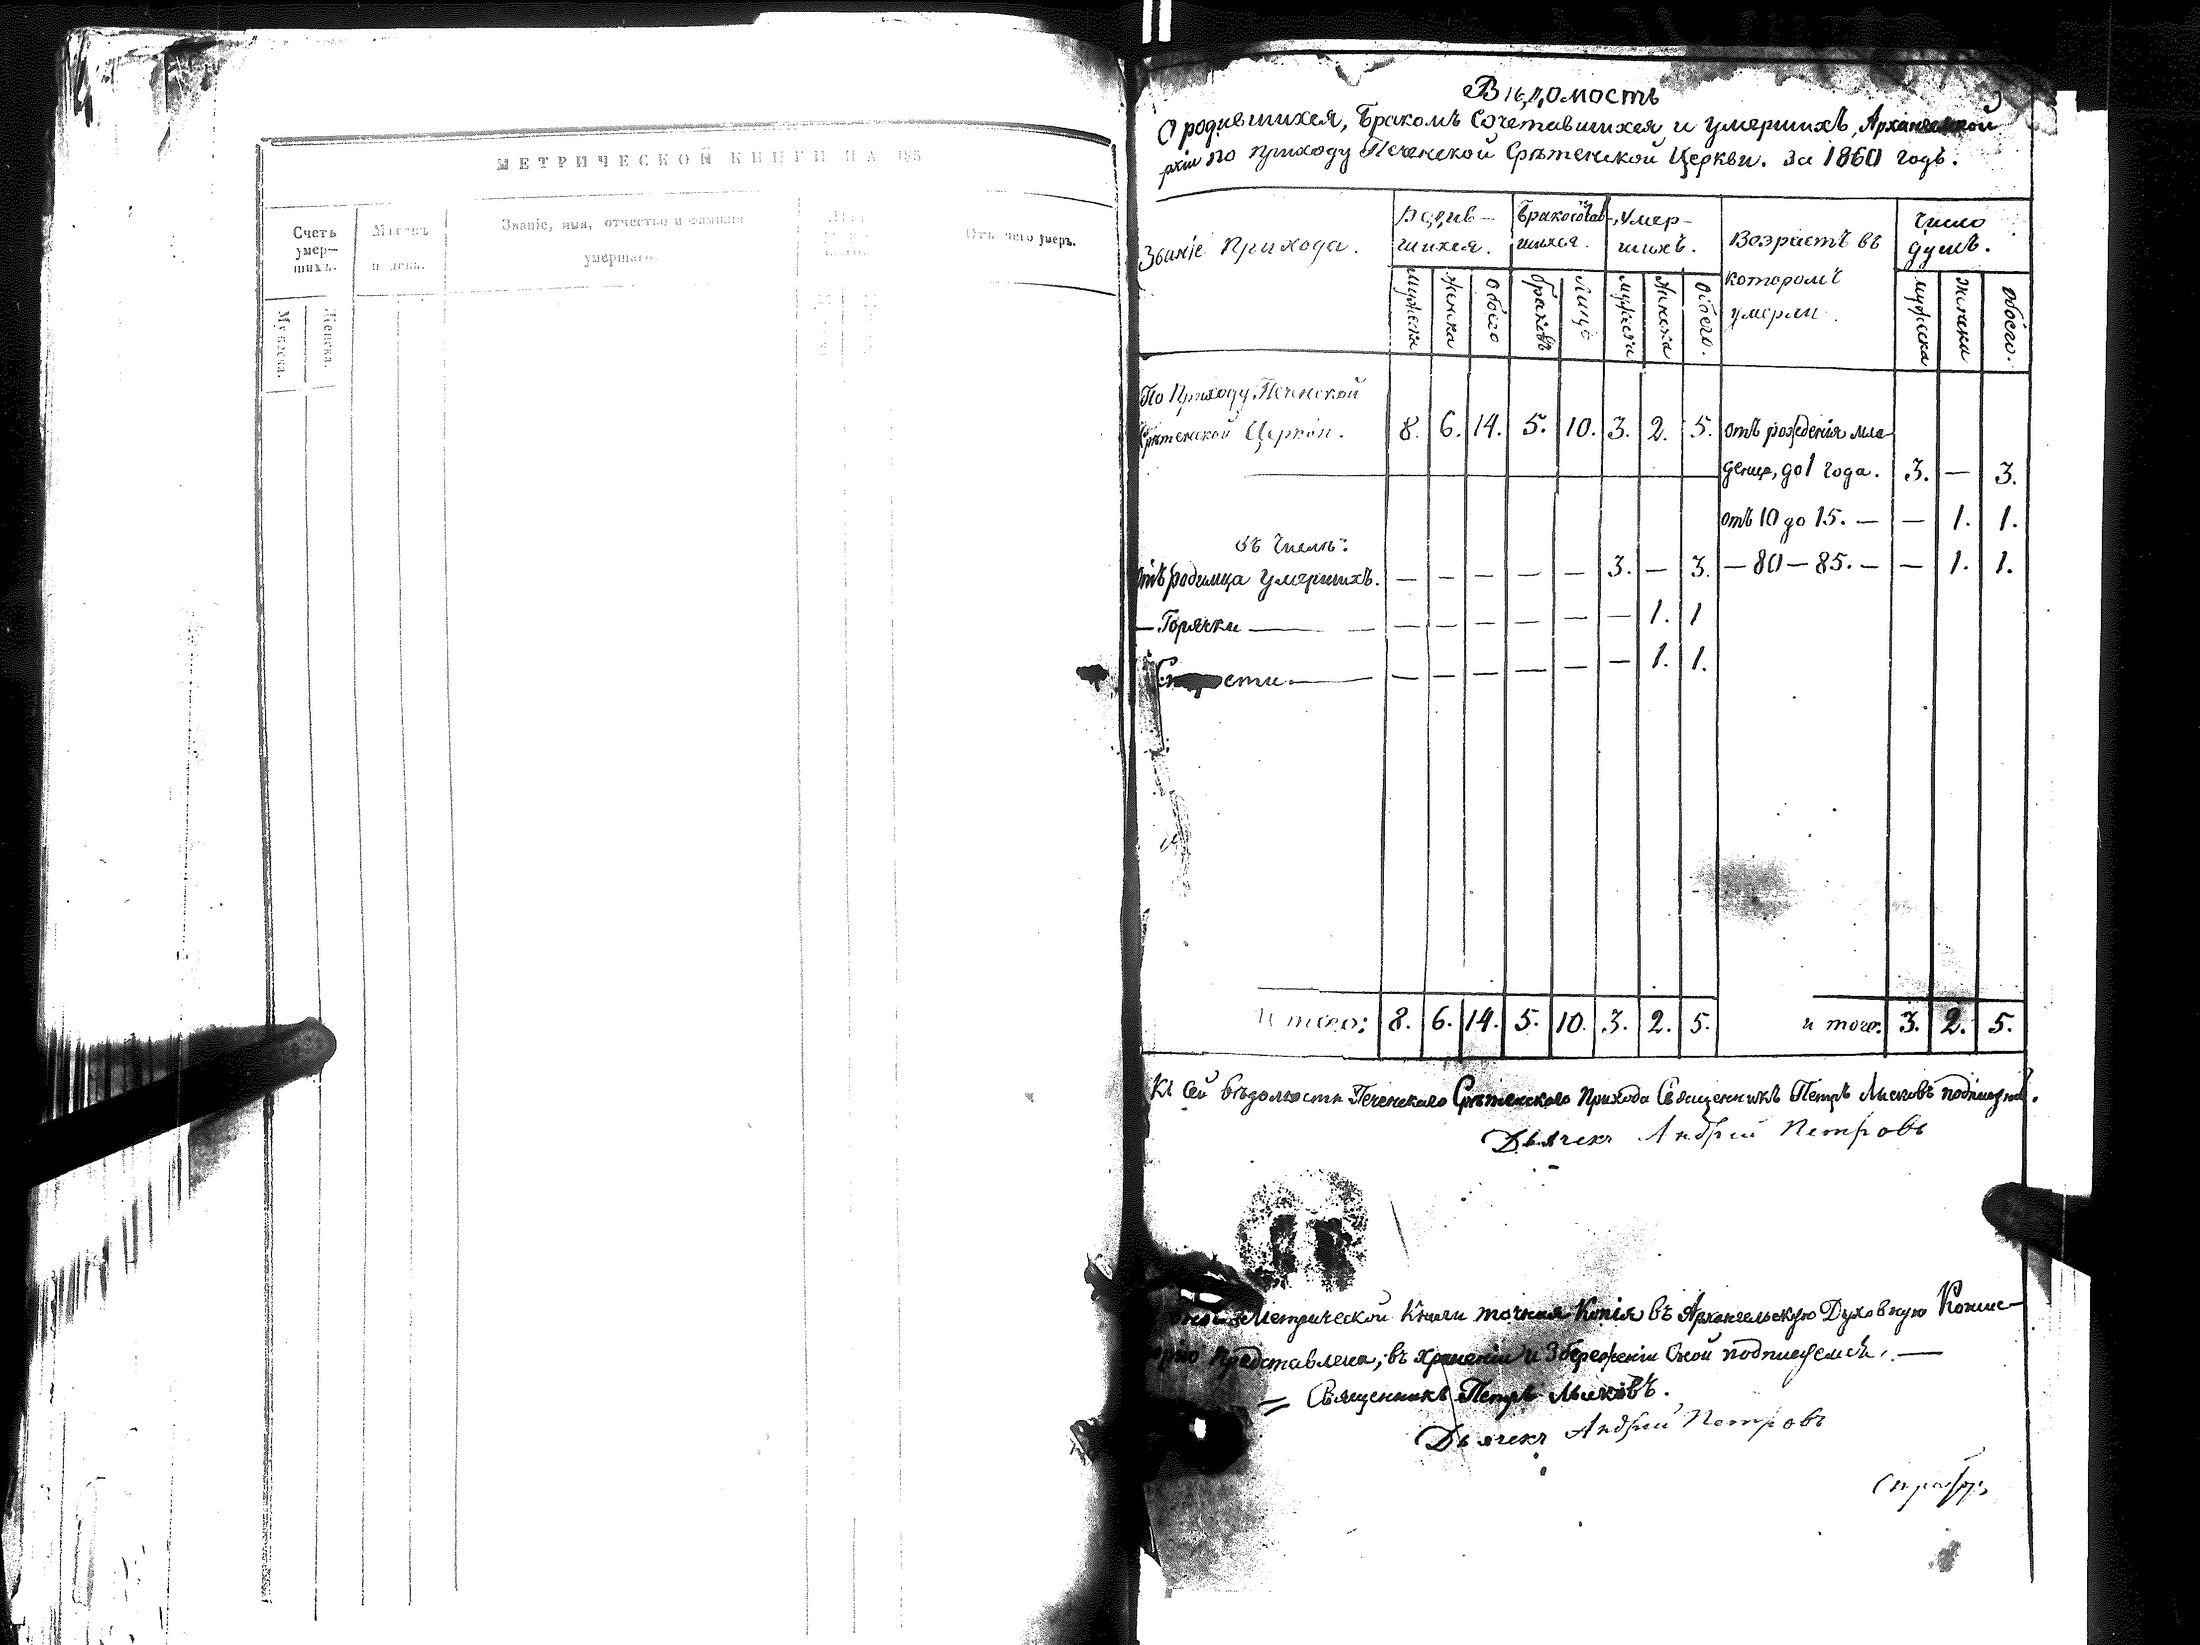 МЕТРИЧЕСКОЙ КНИГИ НА 185
Счетъ умер-шихъ.
Мѣсяцъ и день.
Званіе, имя, отчество и фамилія умершаго.
Отъ чего умеръ.
Мужеска.
Женска.
Вѣдомость
О родившихся, Бракомъ Сочетавшихся и умершихъ, Архангельской
по приходу Печенской Срѣтенской Церкви. За 1860 годъ.
Званіе Прихода.
Родив-шихся.
Бракосочетав-шихся.
Умер-шихъ.
Возрастъ въ которомъ умерли.
Число душъ.
Мужеска
Женска
Обоего
браковъ
Лицъ
Мужеска
Женска
Обоего.
мужеска
женска
обоего.
По Приходу Печенской
Срѣтенской Церкви. 8. 6. 14. 5. 10. 3. 2. 5. отъ рожденія мла
денца, до 1 года. 3. — 3.
отъ 10 до 15. — — 1. 1.
въ Числѣ:
отъ родимца умершихъ. — — — — — 3. — 3. — 80 — 85. — — 1. 1.
— Горячки — — — — — — — 1. 1
Старости — — — — — — — 1. 1.
И того: 8. 6. 14. 5. 10. 3. 2. 5. и того: 3. 2. 5.
Къ Сей вѣдомости Печенскаго Срѣтенскаго Прихода Священникъ Петръ Лысковъ
Дьячекъ Андрей Петровъ
Метрической Книги точная Копія въ Архангельскую Духовную Конис-
Представлена; въ храненіи и Збереженіи Оной подписуемся. —
= Священникъ Петръ Лысковъ.
Дьячекъ Андрей Петровъ